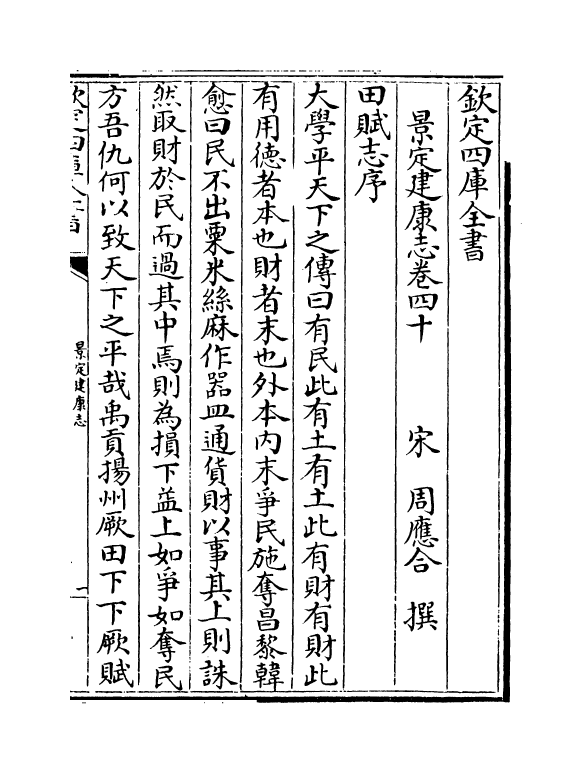 欽定四庫全書
景定建康志卷四十
宋 周應合 撰
田賦志序
大學平天下之傳曰有民此有土有土此有財有財此
有用徳者本也財者末也外本内末爭民施奪昌黎韓
愈曰民不出粟米絲麻作器皿通貨財以事其上則誅
然取財於民而過其中焉則為損下益上如爭如奪民
方吾仇何以致天下之平哉禹貢揚州厥田下下厥賦
景定建康志
一